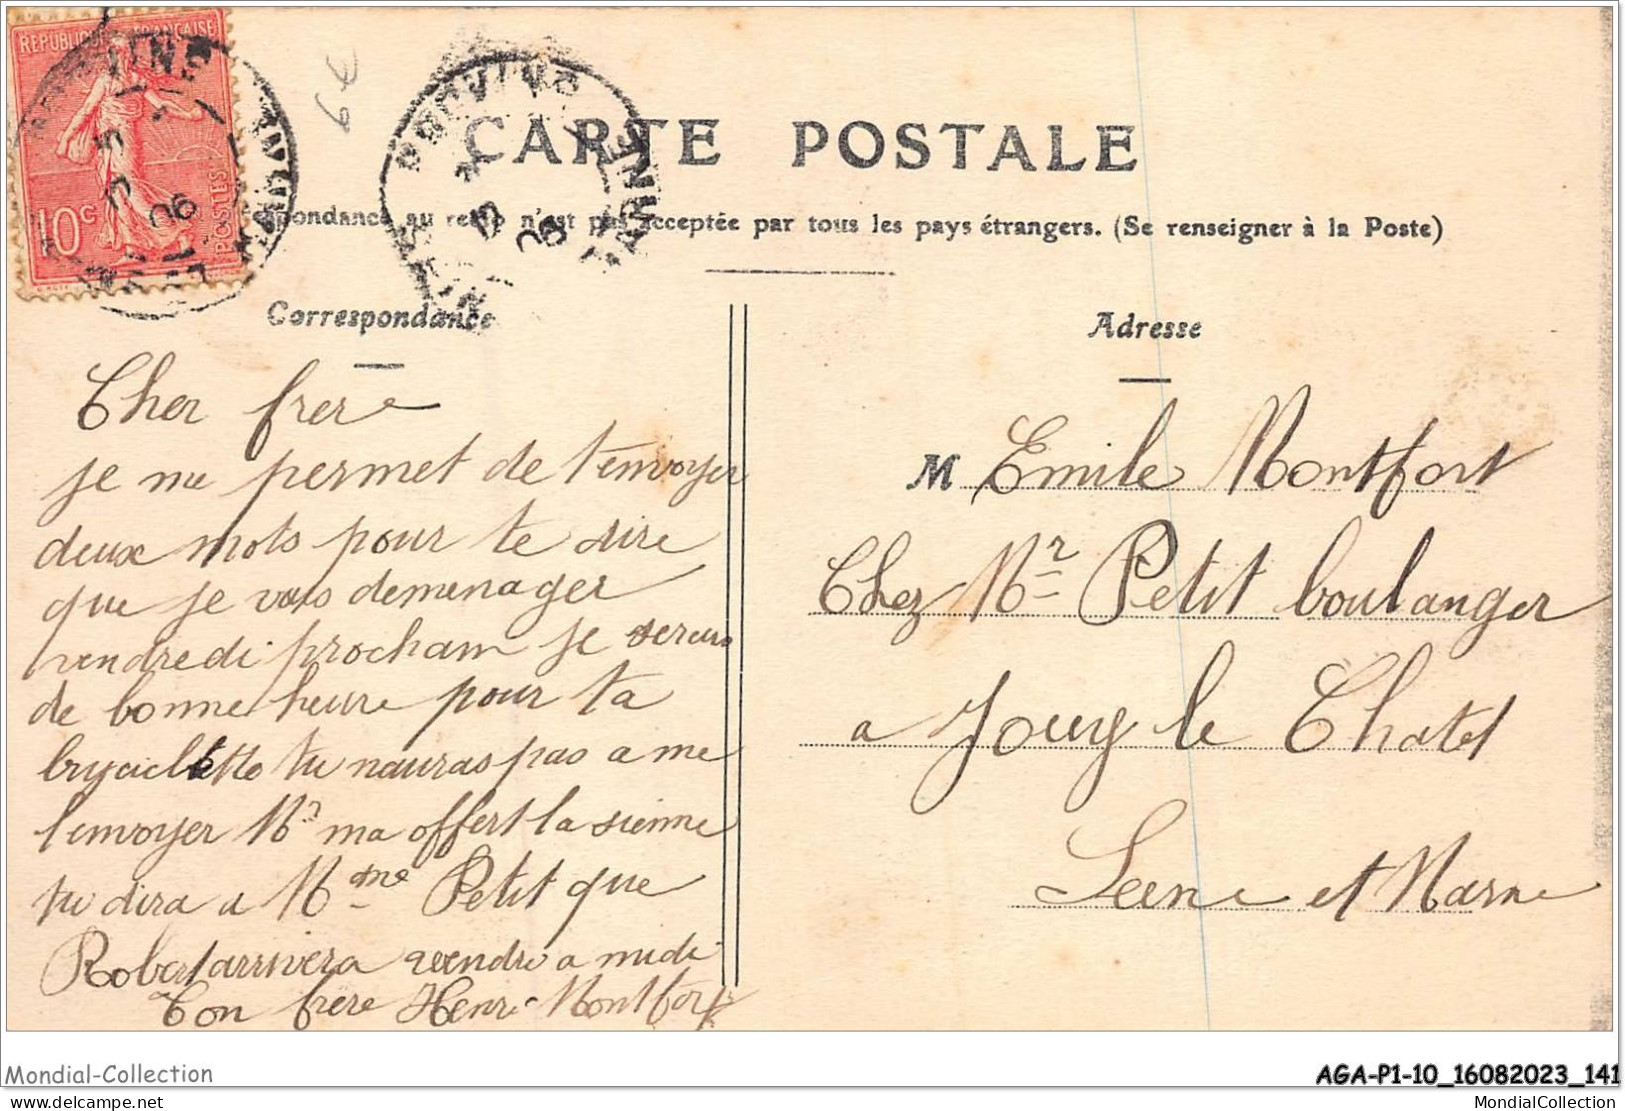 REPUBLIQUE FRANÇAISE
10c
POSTES
6€
PROVINS
06
MARNE
CARTE POSTALE
pondance au recto n'est pas acceptée par tous les pays étrangers. (Se renseigner à la Poste)
Correspondance
Cher frere
je me permet de t'envoyer
deux mots pour te dire
que je vais demenager
vendredi prochain je serais
de bonne heure pour ta
bycicletto tu nauras pas a me
l'envoyer Mr ma offert la sienne
tu dira a Mme Petit que
Robert arrivera vendre a midi
Ton frere Henri Montfort
Adresse
M Emile Montfort
Chez Mr Petit boulanger
a Jouy le Chatel
Seine et Marne
Mondial-Collection
AGA-P1-10_16082023_141
delcampe.net
MondialCollection